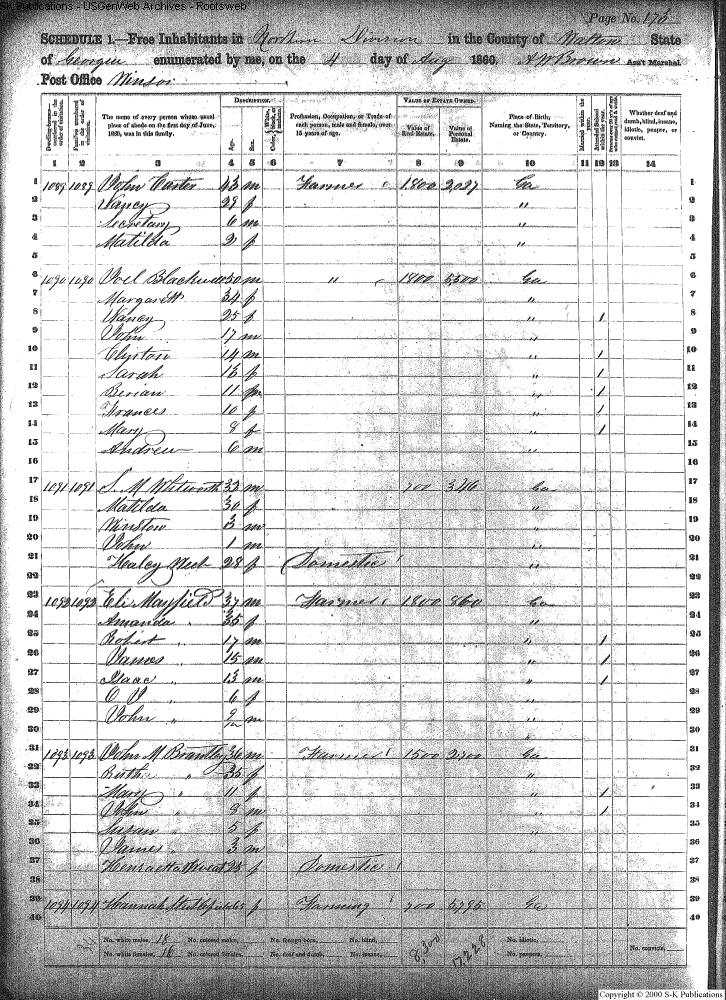 S-K Publications - USGenWeb Archives - Rootsweb
Page No. 176
SCHEDULE 1.—Free Inhabitants in Northern Division in the County of Walton State
of Georgia enumerated by me, on the 4 day of Aug 1860. A W Brown Ass't Marshal.
Post Office
Dwelling-houses numbered in the order of visitation.
Families numbered in the order of visitation.
The name of every person whose usual place of abode on the first day of June, 1860, was in this family.
DESCRIPTION.
Age.
Sex.
Color, White, black, or mulatto.
Profession, Occupation, or Trade of each person, male and female, over 15 years of age.
VALUE OF ESTATE OWNED.
Value of Real Estate.
Value of Personal Estate.
Place of Birth, Naming the State, Territory, or Country.
Married within the year.
Attended School within the year.
Whether deaf and dumb, blind, insane, idiotic, pauper, or convict.
1 2 3 4 5 6 7 8 9 10 11 12 13 14
1 1089 1089 John Carter 43 m Farmer 1800 2,027 Ga 1
2 Nancy 29 f " 2
3 Secretary 6 m " 3
4 Matilda 2 f " 4
5 5
6 1090 1090 Joel Blackwell 50 m " 1800 5,500 Ga 6
7 Margarett 34 f " 7
8 Nancy 25 f " 1 8
9 John 17 m " 9
10 Clinton 14 m " 1 10
11 Sarah 13 f " 1 11
12 Berian 11 m " 1 12
13 Frances 10 f " 1 13
14 Mary 8 f " 1 14
15 Andrew 6 m " 15
16 16
17 1091 1091 S. M Whitworth 32 m 700 346 Ga 17
18 Matilda 30 f " 18
19 Winston 3 m " 19
20 John 1 m " 20
21 Healey 28 f Domestic " 21
22 22
23 1092 1092 Eli Mayfield 37 m Farmer 1800 860 Ga 23
24
25 Amanda " 35 f " 25
26 Robert " 17 m " 1 26
27 James " 15 m " 1 27
28 Isaac " 13 m " 1 28
29 " 6 f " 29
30 John " m " 30
31 1093 1093 John M Brantley 36 m Farmer 1500 2,700 Ga 31
32 Ruth " 35 f " 32
33 Mary " 11 f " 1 33
34 John " 8 m " 1 34
35 Susan " 5 f " 35
36 James " 3 m " 36
37 Henrietta f Domestic 37
38 38
39 1094 1094 Hannah f Farming 700 5,795 Ga 39
40 40
No. white males, 18 No. colored males, No. foreign born, No. blind, No. idiotic,
No. white females, 16 No. colored females, No. deaf and dumb, No. insane, 8,300 17,228 No. paupers, No. convicts,
Copyright © 2000 S-K Publications